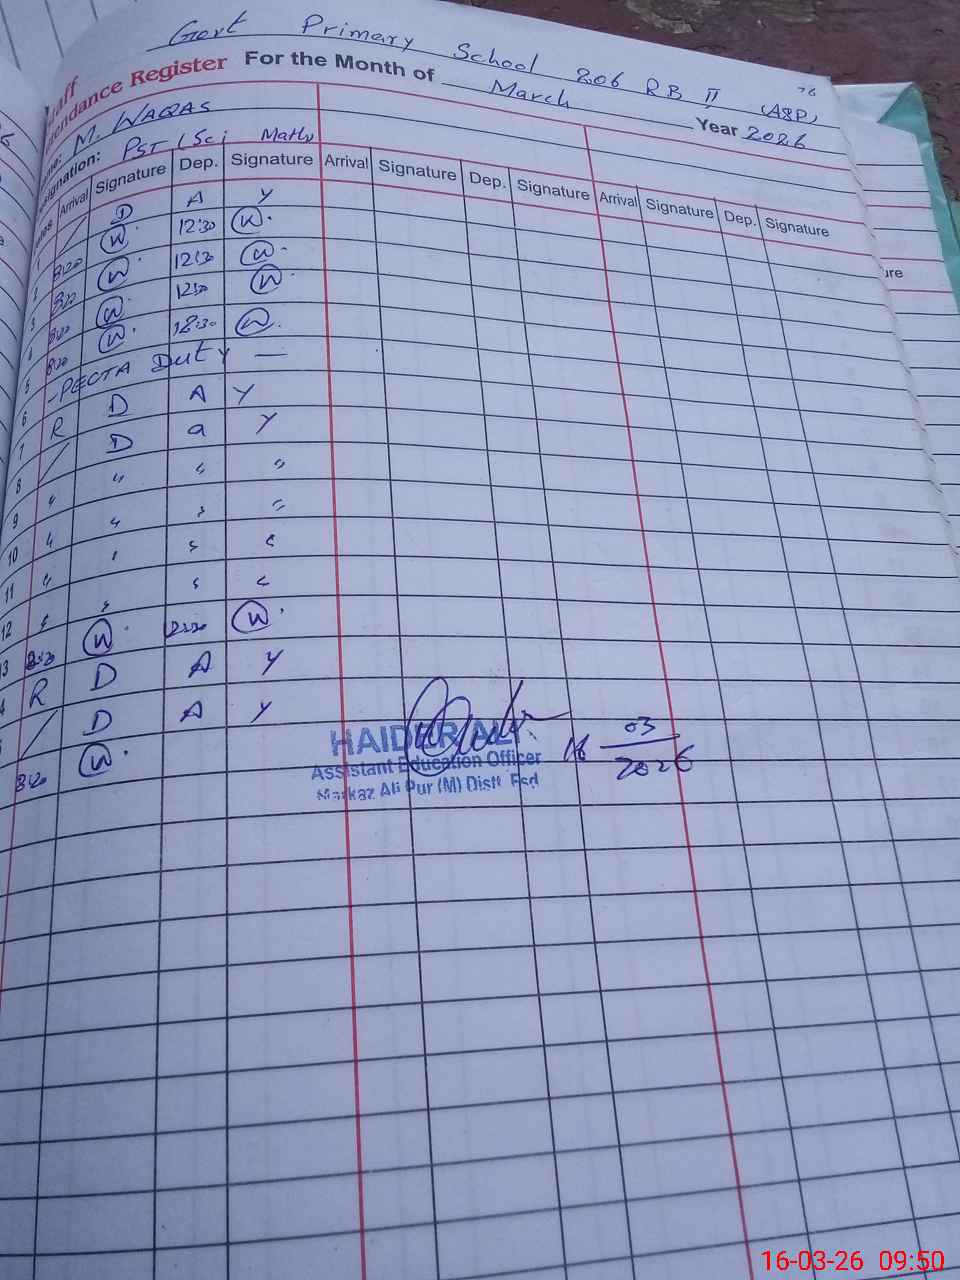 Govt Primary School 206 RB II (A&P)
Attendance Register For the Month of March Year 2026
M. WAQAS
PST (Sci Math)
Arrival Signature Dep. Signature Arrival Signature Dep. Signature Arrival Signature Dep. Signature
1 / D A Y
2 8:20 W 12:30 W
3 8:20 W 12:30 W
4 8:20 W 12:30 W
5 8:20 W 12:30 W
6 - PECTA Duty —
7 R D A Y
8 / D a Y
9 " " " "
10 " " " "
11 " " " "
12 " " " "
13 8:20 W 12:30 W
R D A Y
/ D A Y
8:20 W
HAIDER ALI
Assistant Education Officer
Markaz Ali Pur (M) Distt Fsd
16 03
2026
16-03-26 09:50